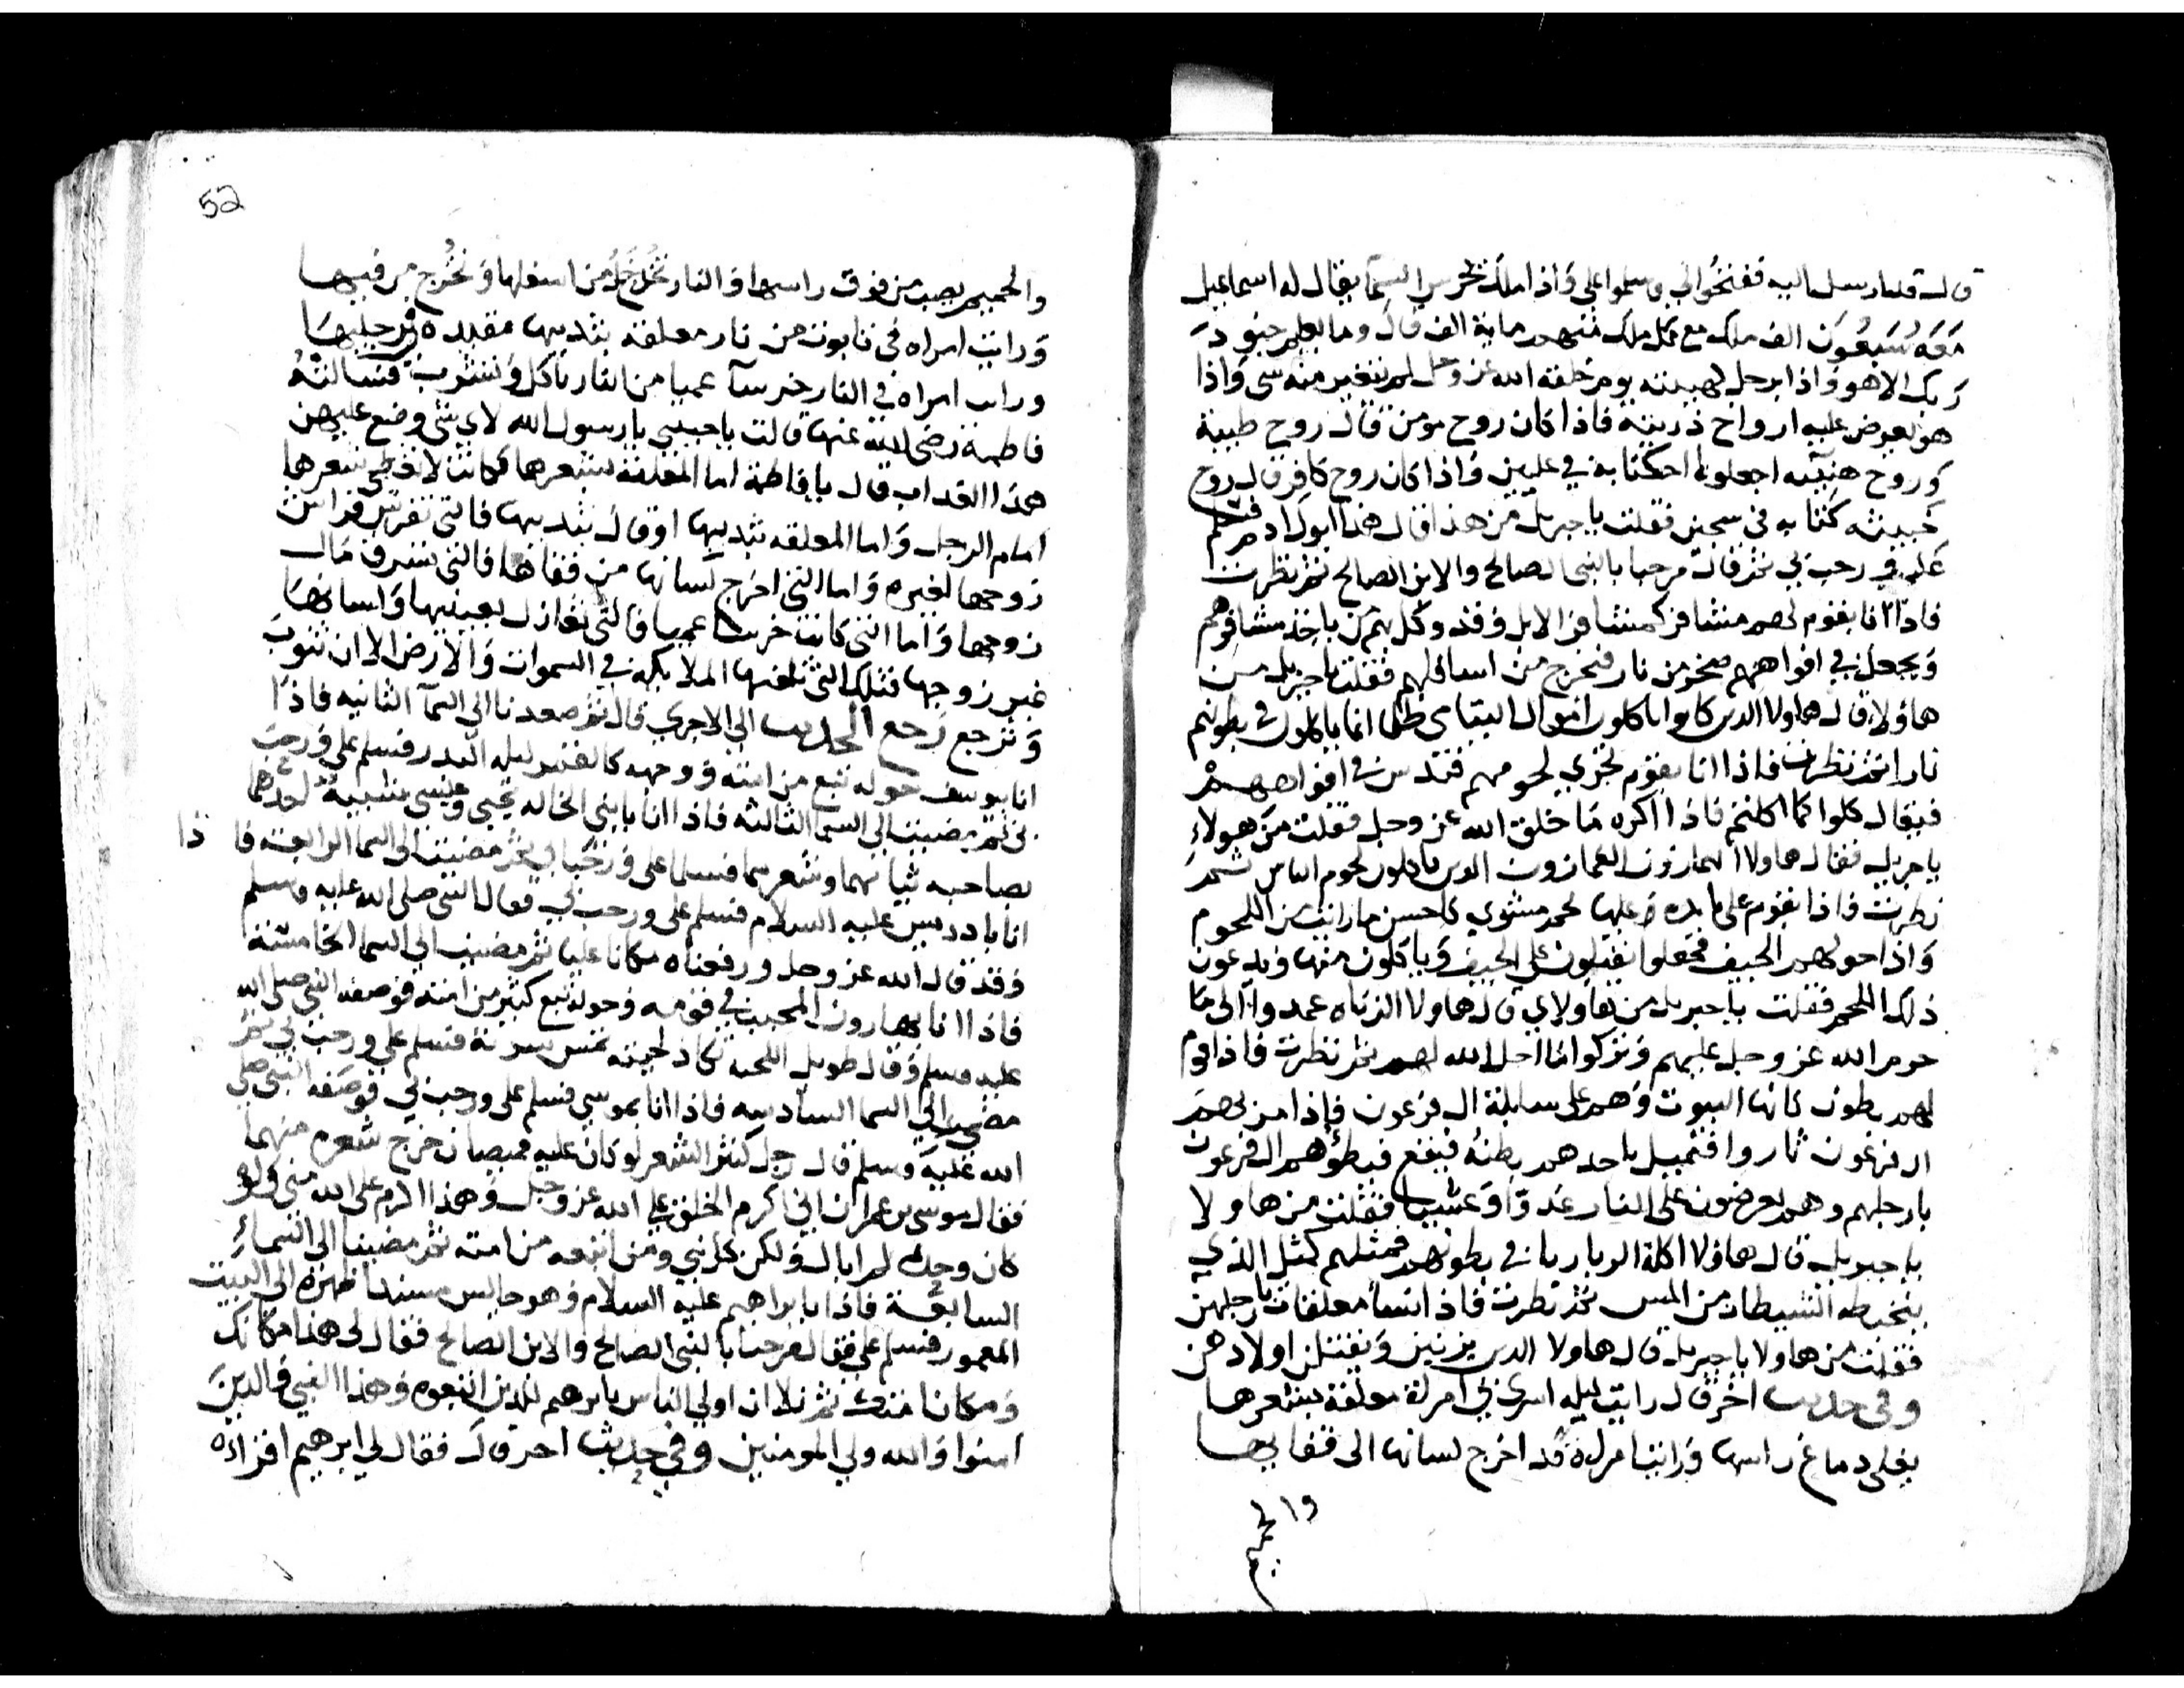 قال قد ارسل اليه ففتحوا لي وسلموا علي واذا ملك يحرس السما يقال له اسماعيل
معه سبعون الف ملك مع كل ملك منهم ماية الف قال وما يعلم جنود
ربك الا هو واذا برجل كهيئته يوم خلقه الله عز وجل لم يتغير منه شي واذا
هو يعرض عليه ارواح ذريته فاذا كان روح مومن قال روح طيبة
وروح اجعلوا كتابه في عليين واذا كان روح كافر قال روح
خبيثه كتابه في سجين فقلت يا جبريل من هذا قال هذا ابوك ادم فسلم
علي ورحب بي ثم قال مرحبا بالنبي الصالح والابن الصالح ثم نظرت
فاذا انا بقوم لهم مشافر كمشافر الابل وقد وكل بهم من ياخذ مشافرهم
ويجعل في افواههم صخر من نار فيخرج من اسافلهم فقلت يا جبريل من
هاولاء قال هاولا الذين كانوا ياكلون اموال اليتامى ظلما انما ياكلون في بطونهم
نارا ثم نظرت فاذا انا بقوم لحومهم فتدس في افواههم
فيقال كلوا كما اكلتم فاذا اكره ما خلق الله عز وجل فقلت من هولاء
يا جبريل فقال هاولا الهمازون الغمازون الذين ياكلون لحوم الناس ثم
نظرت فاذا بقوم على مايده وعليها لحم مشوي كاحسن ما رايت من اللحوم
واذا حولهم الجيف فجعلوا يقبلون على الجيف وياكلون منها ويدعون
ذلك اللحم فقلت يا جبريل من هاولاي قال هاولا الزناه عمدوا الى ما
حرم الله عز وجل عليهم وتركوا ما احل الله لهم ثم نظرت فاذا قوم
لهم بطون كانها البيوت وهم على سابلة ال فرعون فاذا مر بهم
ال فرعون ثاروا فيميل باحدهم بطنه فيقع فيطؤهم ال فرعون
بارجلهم وهم يعرضون على النار غدوا وعشيا فقلت من هاولا
يا جبريل قال هاولا اكلة الربا ربا في بطونهم فمثلهم كمثل الذي
يتخبطه الشيطان من المس ثم نظرت فاذا نسا معلقات بارجلهن
فقلت من هاولا يا جبريل قال هاولا الذين يزنين ويقتلن اولادهن
وفي حديث اخر قال رايت ليله اسري بي امراة معلقة بشعرها
يغلي دماغ راسها ورايت امراة قد اخرج لسانها الى قفايها
والحميم
52
والحميم يصب من فوق راسها والنار تدخل من اسفلها وتخرج من فيها
ورايت امراه في تابوت من نار معلقه بثديها مقيده رجليها
ورايت امراه في النار خرسآ عميا من النار تاكل وتشرب فسالته
فاطمة رضي الله عنها قالت يا حبيبي يا رسول الله لاي شي وضع عليهن
هذا العذاب قال يا فاطمة اما المعلقه بشعرها فكانت لا تغطي شعرها
امام الرجل واما المعلقه بثديها او قال بثدييها فالتي تفرش فراش
زوجها لغيره واما التي اخرج لسانها من قفاها فالتي تسرق مال
زوجها واما التي كانت خرسا عميا فالتي تغازل بعينيها ولسانها
غير زوجها فتلك التي تلعنها الملايكه في السموات والارض الا ان تتوب
وترجع رجع الحديث الي الاجري قال ثم صعدنا الى السمآ الثانيه فاذا
انا بيوسف حوله تبع من امته ووجهه كالقمر ليله البدر فسلم علي ورحب
بي ثم مضيت الى السما الثالثه فاذا انا بابني الخاله يحيى وعيسى يشبه احدهما
بصاحبه ثيابهما وشعرهما فسلما علي ورحبا بي ثم مضيت الى السما الرابعة فاذا
انا بادريس عليه السلام فسلم علي ورحب بي فقال النبي صلى الله عليه وسلم
وقد قال الله عز وجل ورفعناه مكانا عليا ثم مضيت الى السما الخامسة
فاذا انا بهارون المحبب في قومه وحوله تبع كثير من امته فوصفه النبي صلى الله
عليه وسلم وقال طويل اللحيه تكاد لحيته تمس سرته فسلم علي ورحب بي ثم
مضيت الي السما السادسه فاذا انا بموسي فسلم علي ورحب بي فوصفه النبي صلى
الله عليه وسلم قال رجل كثير الشعر لو كان عليه قميصان خرج شعره منهما
فقال موسى بن عمران اني اكرم الخلق علي الله عز وجل وهذا اكرم على الله مني ولو
كان وحده لم ابال ولكن كل نبي ومن اتبعه من امته ثم مضينا الى السماء
السابعة فاذا بابراهيم عليه السلام وهو جالس مسندا ظهره الى البيت
المعمور فسلم علي فقال مرحبا بالنبي الصالح والابن الصالح فقال لي هذا مكانك
ومكان امتك ثم تلا ان اولي الناس بابرهيم للذين اتبعوه وهذا النبي والذين
امنوا والله ولي المومنين وفي حديث اخر قال فقال لي ابرهيم اقراه